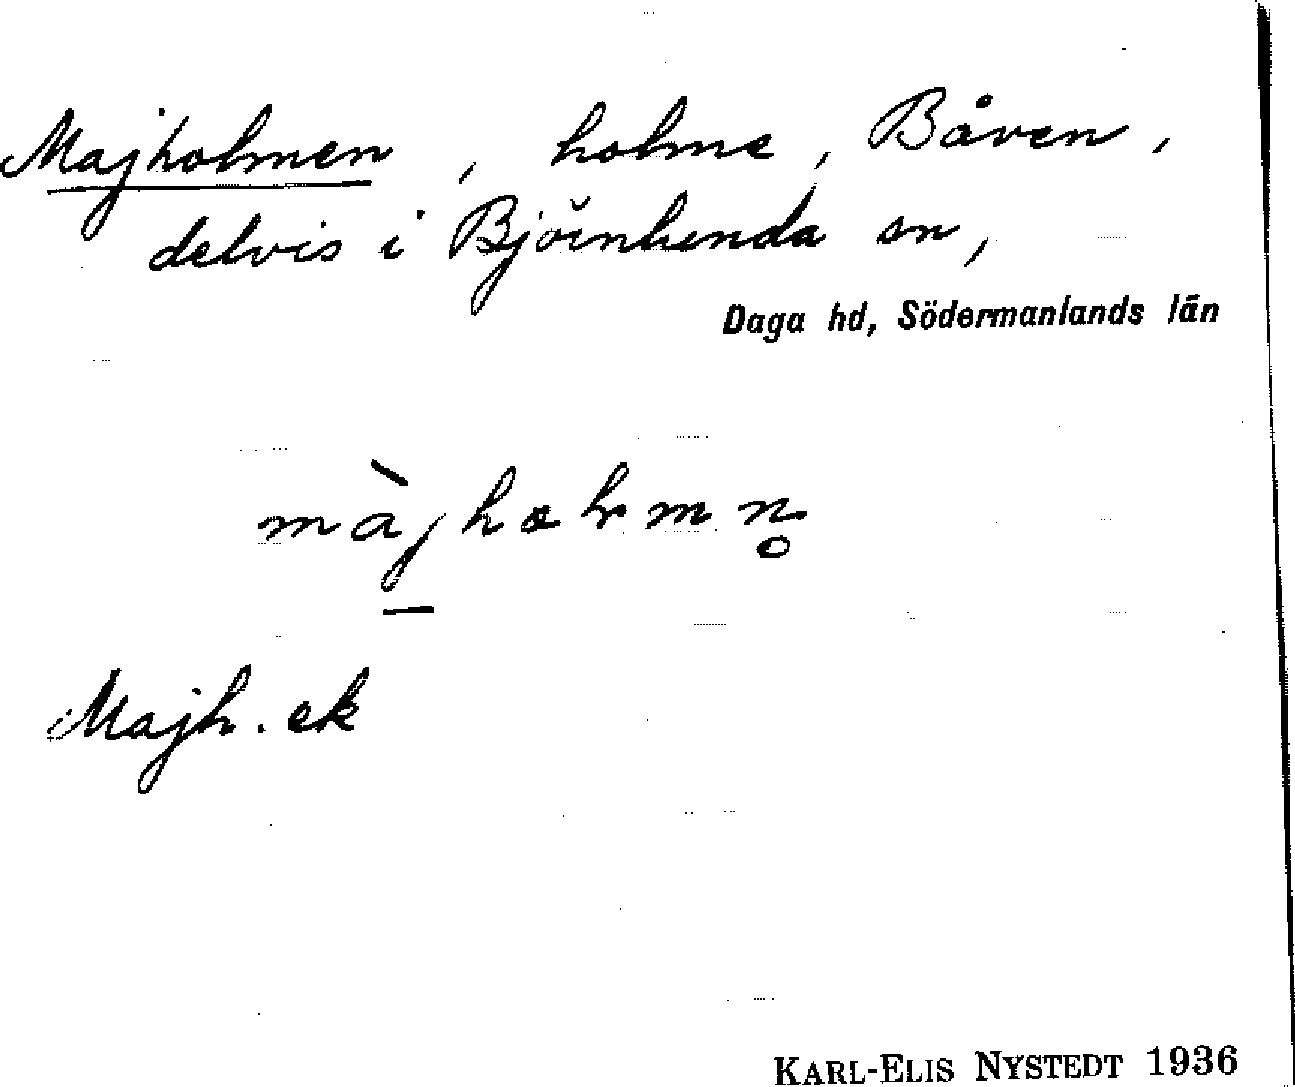 Majholmen, holme, Båven,
delvis i Björnlunda sn,
Daga hd, Södermanlands län
Majh. ek
KARL-ELIS NYSTEDT 1936